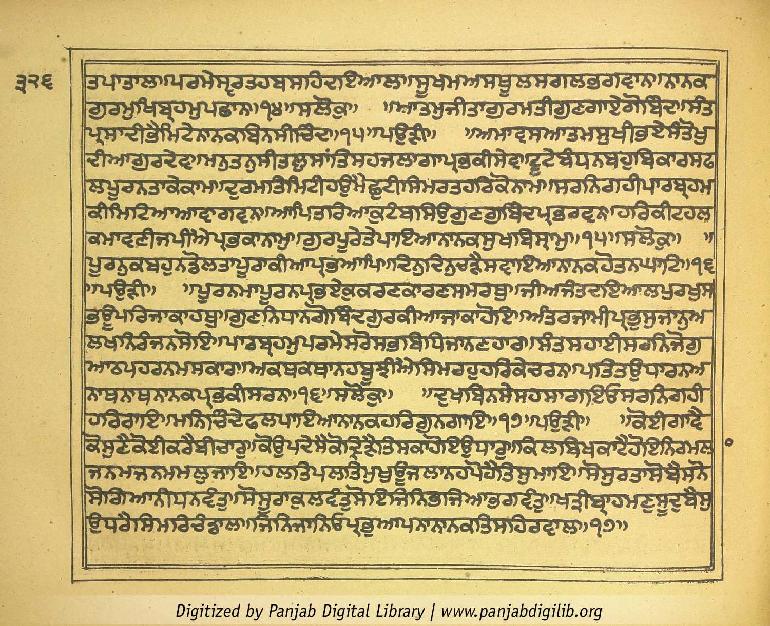 ੩੨੬
ਤਪਾਤਾਲ॥ਪਰਮੇਸੁਰਤਹਬਸਹਿਦਇਆਲ॥ਸੂਖਮਅਸਥੂਲਸਗਲਭਗਵਾਨ॥ਨਾਨਕ
ਗੁਰਮੁਖਿਬ੍ਰਹਮੁਪਛਾਨ॥੧੪॥ਸਲੋਕੁ॥ ॥ਆਤਮੁਜੀਤਾਗੁਰਮਤੀਗੁਣਗਾਏਗੋਬਿੰਦ॥ਸੰਤ
ਪ੍ਰਸਾਦੀਭੈਮਿਟੇਨਾਨਕਬਿਨਸੀਚਿੰਦ॥੧੫॥ਪਉੜੀ॥ ॥ਅਮਾਵਸਆਤਮਸੁਖੀਭਏਸੰਤੋਖੁ
ਦੀਆਗੁਰਦੇਵ॥ਮਨੁਤਨੁਸੀਤਲੁਸਾਂਤਿਸਹਜਲਾਗਾਪ੍ਰਭਕੀਸੇਵ॥ਟੂਟੇਬੰਧਨਬਹੁਬਿਕਾਰਸਫ
ਲਪੂਰਨਤਾਕੇਕਾਮ॥ਦੁਰਮਤਿਮਿਟੀਹਉਮੈਛੁਟੀਸਿਮਰਤਹਰਿਕੋਨਾਮ॥ਸਰਨਿਗਹੀਪਾਰਬ੍ਰਹਮ
ਕੀਮਿਟਿਆਆਵਾਗਵਨ॥ਆਪਿਤਰਿਆਕੁਟੰਬਸਿਉਗੁਣਗੁਬਿੰਦਪ੍ਰਭਰਵਨ॥ਹਰਿਕੀਟਹਲ
ਕਮਾਵਣੀਜਪੀਐਪ੍ਰਭਕਾਨਾਮੁ॥ਗੁਰਪੂਰੇਤੇਪਾਇਆਨਾਨਕਸੁਖਬਿਸ੍ਰਾਮੁ॥੧੫॥ਸਲੋਕੁ॥ ॥
ਪੂਰਨੁਕਬਹੁਨਡੋਲਤਾਪੂਰਾਕੀਆਪ੍ਰਭਆਪਿ॥ਦਿਨੁਦਿਨੁਚੜੈਸਵਾਇਆਨਾਨਕਹੋਤਨਘਾਟਿ॥੧੬
॥ਪਉੜੀ॥ ॥ਪੂਰਨਮਾਪੂਰਨਪ੍ਰਭਏਕੁਕਰਣਕਾਰਣਸਮਰਥੁ॥ਜੀਅਜੰਤਦਇਆਲਪੁਰਖੁਸ
ਭਊਪਰਿਜਾਕਾਹਥੁ॥ਗੁਣਨਿਧਾਨਗੋਬਿੰਦਗੁਰਕੀਆਜਾਕਾਹੋਇ॥ਅੰਤਰਜਾਮੀਪ੍ਰਭੁਸੁਜਾਨੁਅ
ਲਖਨਿਰੰਜਨਸੋਇ॥ਪਾਰਬ੍ਰਹਮੁਪਰਮੇਸਰੋਸਭਬਿਧਿਜਾਨਣਹਾਰ॥ਸੰਤਸਹਾਈਸਰਨਿਜੋਗੁ
ਆਠਪਹਰਨਮਸਕਾਰ॥ਅਕਥਕਥਾਨਹਬੂਝੀਐਸਿਮਰਹੁਹਰਿਕੇਚਰਨ॥ਪਤਿਤਉਧਾਰਨਅ
ਨਾਥਨਾਥਨਾਨਕਪ੍ਰਭਕੀਸਰਨ॥੧੬॥ਸਲੋਕੁ॥ ॥ਦੁਖਬਿਨਸੇਸਹਸਾਗਇਓਸਰਨਿਗਹੀ
ਹਰਿਰਾਇ॥ਮਨਿਚਿੰਦੇਫਲਪਾਇਆਨਾਨਕਹਰਿਗੁਨਗਾਇ॥੧੭॥ਪਉੜੀ॥ ॥ਕੋਈਗਾਵੈ
ਕੋਸੁਣੈਕੋਈਕਰੈਬੀਚਾਰੁ॥ਕੋਉਪਦੇਸੈਕੋਦ੍ਰਿੜੈਤਿਸਕਾਹੋਇਉਧਾਰੁ॥ਕਿਲਬਿਖਕਾਟੈਹੋਇਨਿਰਮਲ
ਜਨਮਜਨਮਮਲੁਜਾਇ॥ਹਲਤਿਪਲਤਿਮੁਖੁਊਜਲਾਨਹਪੋਹੈਤਿਸੁਮਾਇ॥ਸੋਸੁਰਤਾਸੋਬੈਸਨੋ
ਸੋਗਿਆਨੀਧਨਵੰਤੁ॥ਸੋਸੂਰਾਕੁਲਵੰਤੁਸੋਇਜਿਨਿਭਜਿਆਭਗਵੰਤੁ॥ਖਤ੍ਰੀਬ੍ਰਾਹਮਣੁਸੂਦੁਬੈਸੁ
ਉਧਰੈਸਿਮਰਿਚੰਡਾਲ॥ਜਿਨਿਜਾਨਿਓਪ੍ਰਭੁਆਪਨਾਨਾਨਕਤਿਸਹਿਰਵਾਲ॥੧੭॥
Digitized by Panjab Digital Library | www.panjabdigilib.org